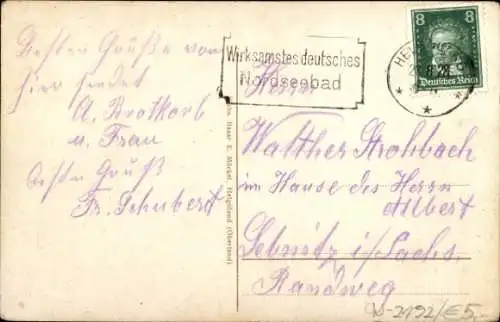 Besten Grüße von
hier sendet
A. Brotkorb
u. Frau
Besten Gruß
Fr. Schubert
Wirksamstes deutsches
Nordseebad
8 8
Deutsches Reich
HEL
Herrn
Walther Strohbach
im Hause des Herrn
Albert
Sebnitz i/Sachs.
Randweg
Helgoland (Oberland)
90-2192/€5,-